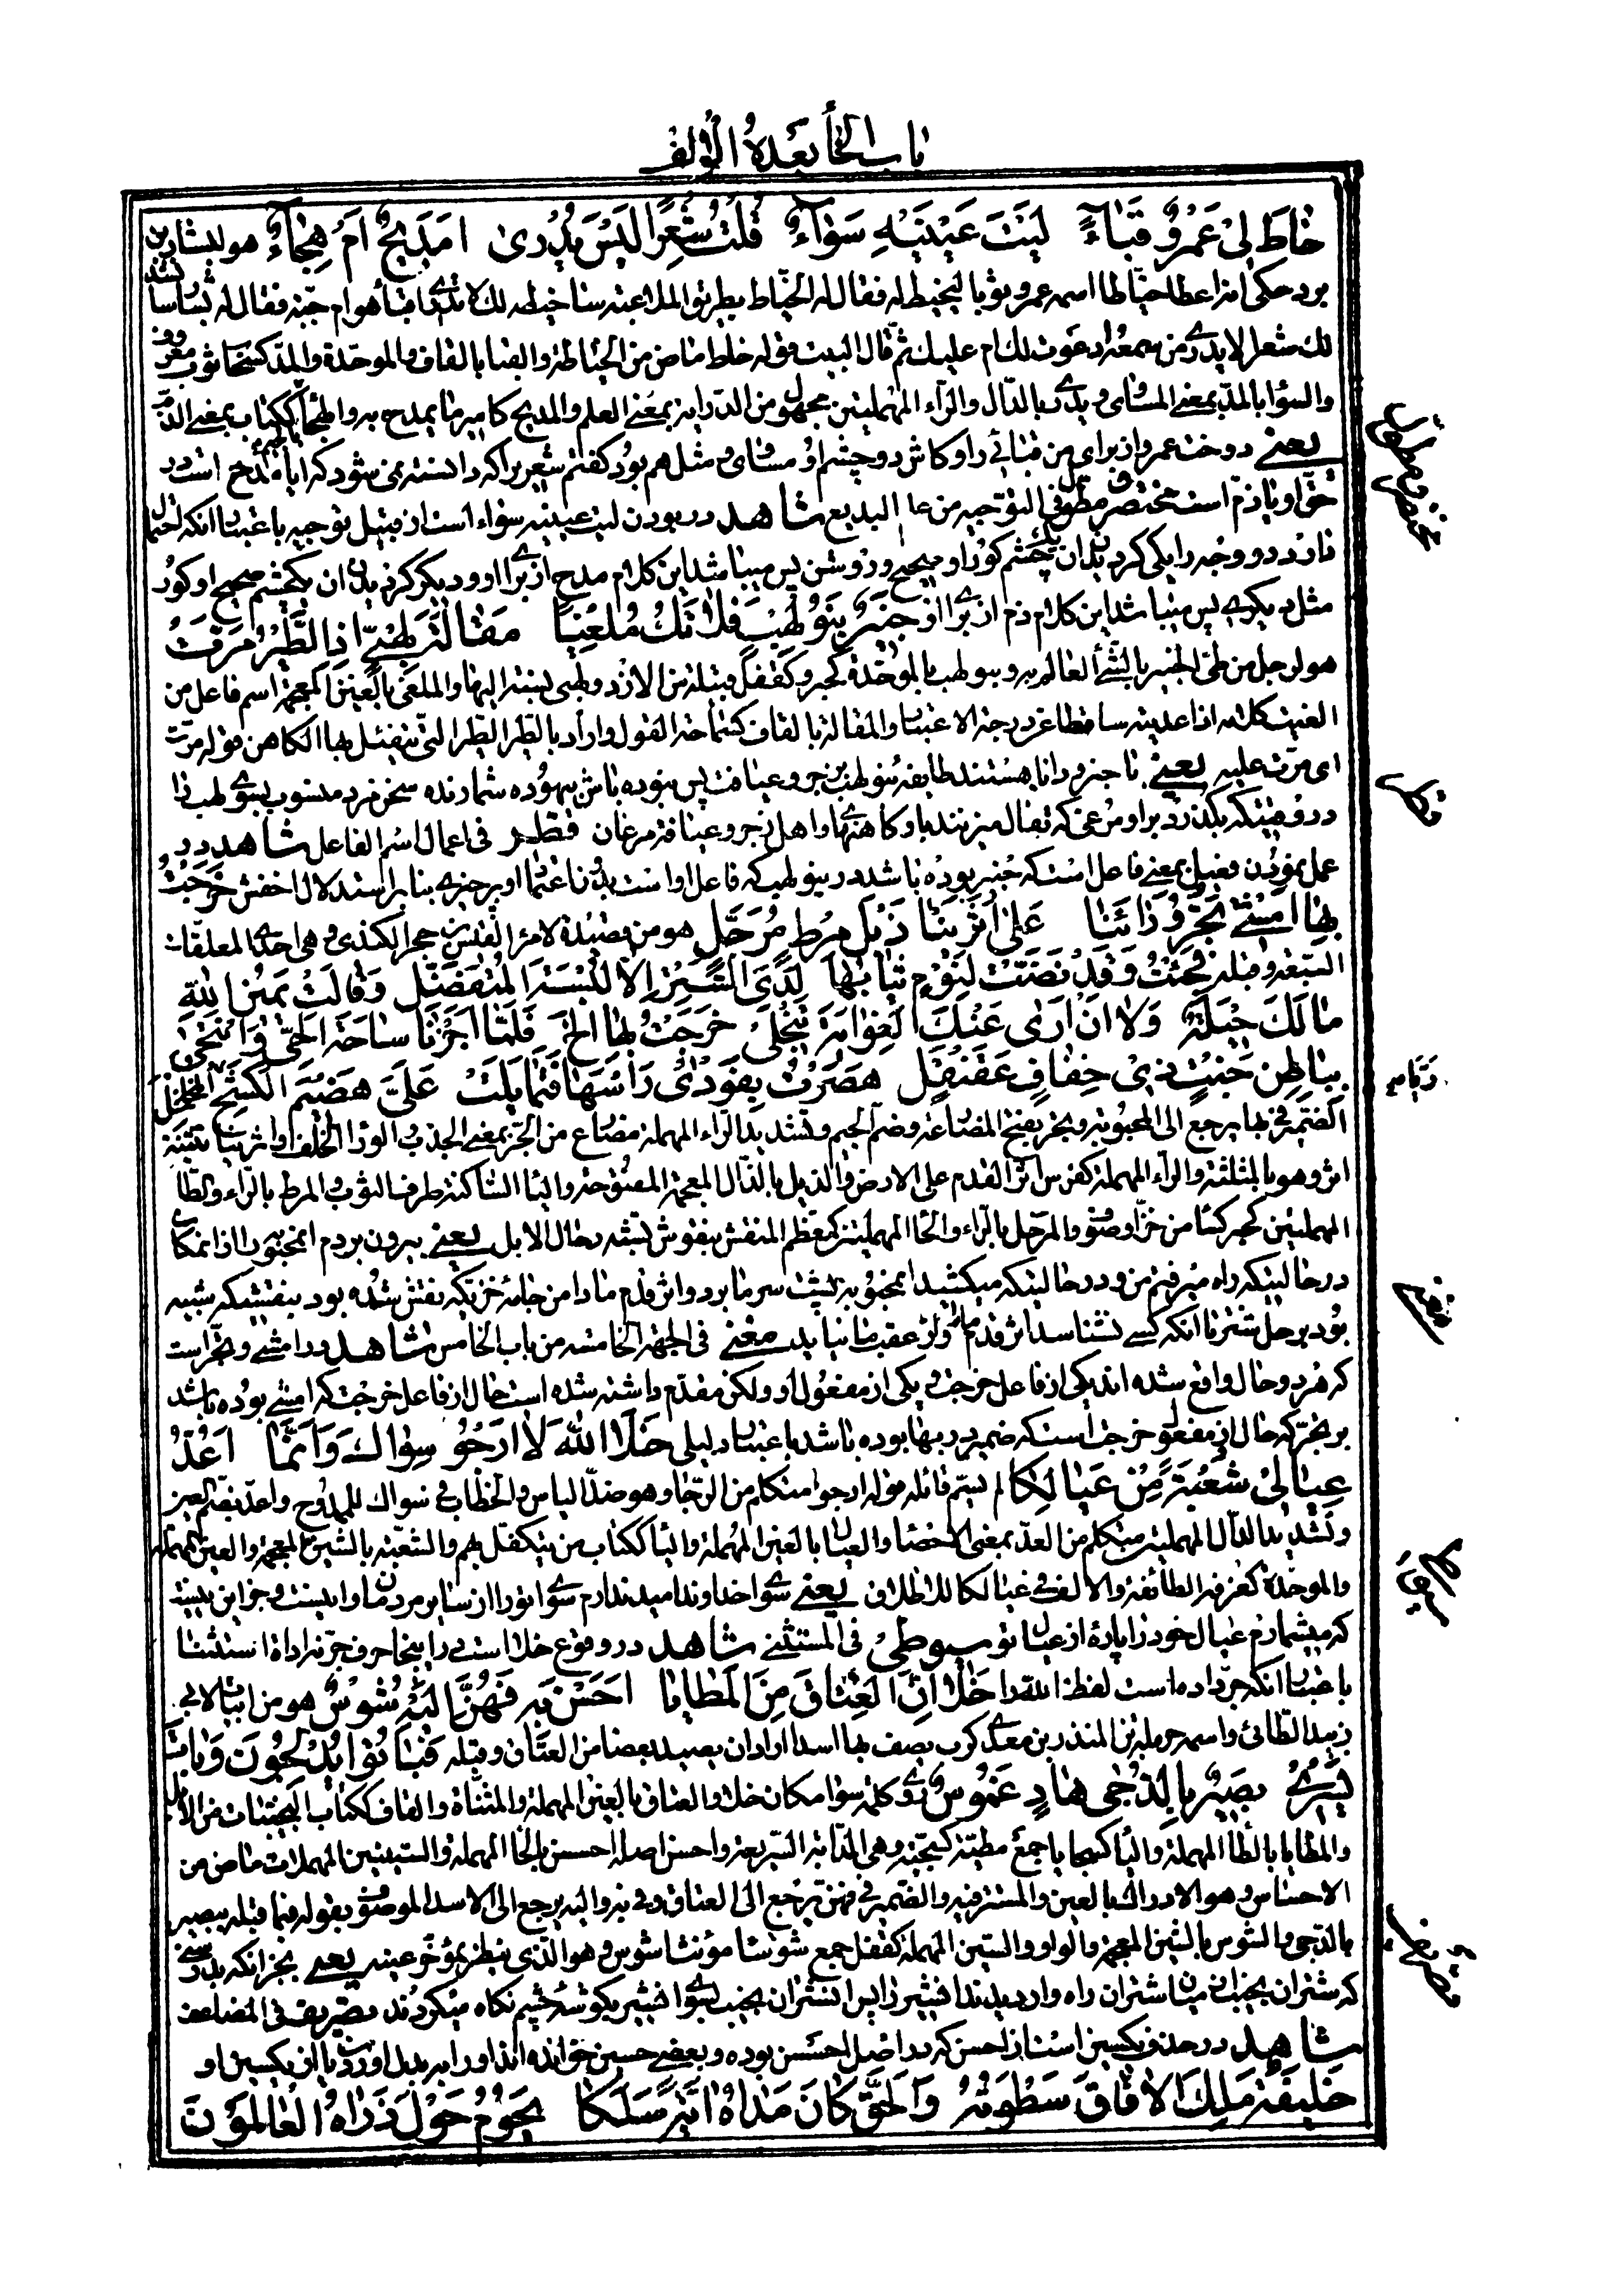 باب الخأ بعده الألف
خاط لی عمرو قبآء لیت عینیه سوآء قلت شعرا لیس یدری امدیح ام هجآء هو لبشار بن
برد حکی انه اعطا خیاطا اسمه عمرو ثوبا لیخیطه له فقال له الخیاط بطریق الملاعبه ساخیطه لک لا تدری اقبا هو ام جبه فقال له بشار سانشد
لک شعرا لا یدری من سمعه ادعوت لک ام علیک ثم قال البیت قوله خاط ماض من الخیاطة والقبا بالقاف والموحدة والمد کسحاب ثوب معروف
والسوا بالمد بمعنی المساوی ویدری بالدال والرآء المهملتین مجهول من الدرایة بمعنی العلم والمدیح کامیر ما یمدح به والهجا ککتاب بمعنی الذم
یعنی دوخت عمرو از برای من قبائی را و کاش دو چشم او مساوی و مثل هم بود کفتم شعریرا که دانسته نمی شود که ایا مدح است در
حق او یا ذم است مختصر مطول فی التوجیه من علم البدیع شاهد در بودن لیت عینیه سواء است از قبیل توجیه باعتبار انکه احتمال
دارد دو وجه را یکی کردیدن ان چشم کور او صحیح و روشن پس میباشد این کلام مدح از برای او و دیکر کردیدن ان یکچشم صحیح او کور
مثل دیکری پس میباشد این کلام ذم از برای او خبیر بنو لهب فلا تک ملغیا مقالة لهبی اذا الطیر مرت
هو لرجل من طی الخبیر بالشئ العالم به وبنو لهب بالموحدة کحبر وکقفل قبیلة من الازد ولهبی نسبة الیها والملغی بالغین المعجمة اسم فاعل من
الغیت کلامه اذا عدیته ساقطا عن درجة الاعتبار والمقالة بالقاف کشماحة القول واراد بالطیر الطیر التی یتفئل بها الکاهن قوله مرت
ای مرت علیه یعنی با خبر و دانا هستند طایفه بنو لهب بزجر و عیافت پس نبوده باش بیهوده شمارنده سخن مرد منسوب بسوی لهب را
در وقتیکه بکذرد بر او مرغی که تفال میزنند باو کاهنها و اهل زجر و عیافه مرغان قطر فی اعمال اسم الفاعل شاهد در
عمل نمودن فعیل بمعنی فاعل است که خبیر بوده باشد در بنو لهب که فاعل اوست بدون اعتماد او بر چیزی بنا بر استدلال اخفش خرجت
بها امشی تجر ورائنا علی اثرینا ذیل مرط مرحل هو من قصیدة لامرء القیس بن حجر الکندی وهی احدی المعلقات
السبعة وقبله فجئت وقد نضت لنوم ثیابها لدی الستر الا لبسة المتفضل وقالت یمین الله
مالک حیلة ولا ان اری عنک الغوایة تنجلی خرجت بها الخ فلما اجزنا ساحة الحی وانتحی
بنا بطن خبت ذی خفاف عقنقل هصرت بفودی راسها فتمایلت علی هضیم الکشح ریا المخلخل
الضمیر فی بها یرجع الی المحبوبة وتجر بفتح المضارعة وضم الجیم وتشدید الراء المهملة مضارع من الجر بمعنی الجذب و الورا الخلف و اثرینا تثنیة
اثر وهو بالمثلثة والرآء المهملة کفرس اثر القدم علی الارض والذیل بالذال المعجمة المفتوحة والیا الساکنة طرف الثوب والمرط بالرآء والطا
المهملتین کحبر کسا من خز او صوف والمرحل بالرآء والحا المهملتین کمعظم المنقش بنقوش تشبه رحال الابل یعنی بیرون بردم انمحبوبه را از انمکان
درحالیتیکه راه میرفتم من و درحالتیکه میکشید انمحبوبه بر پشت سر ما بر دو اثر قدم ما دامن جامه خزیکه نقش شده بود بنقشیکه شبیه
بود برحل شتر تا انکه کسی نشناسد اثر قدم ما را و از عقب ما نیاید مغنی فی الجهة الخامسة من باب الخامس شاهد در امشی و تجر است
که هر دو حال واقع شده اند یکی از فاعل خرجت و یکی از مفعول او ولکن مقدم داشته شده است حال از فاعل خرجت که امشی بوده باشد
بر تجر که حال از مفعول خرجت است که ضمیر در بها بوده باشد باعتبار دلیلی خلا الله لا ارجو سواک وانما اعد
عیالی شعبة من عیالکا لم یسم قائله قوله ارجو متکلم من الرجا وهو ضد الیاس والخطاب فی سواک للممدوح واعد بضم العین
وتشدید الدال المهملتین متکلم من العد بمعنی الاحصا والعیال بالعین المهملة والیا ککتاب من یتکفل بهم والشعبة بالشین المعجمة والعین المهملة
والموحدة کغرفة الطائفة والالف فی عیالکا للاطلاق یعنی سوای خداوند امید ندارم سوای تو را از سایر مردمان و این است و جز این نیست
که میشمارم عیال خود را پارهٔ از عیال تو سیوطی فی المستثنی شاهد در وقوع خلا است در اینجا حرف جر و اداة استثنا
باعتبار انکه جر داده است لفظ الله را خلا ان العتاق من المطایا احسن به فهن الیه شوس هو من ابیات لابی
زبید الطائی واسمه حرملة بن المنذر بن معدی کرب یصف بها اسدا اراد ان یصید بعضا من العتاق وقبله فباتوا یدلجون وبات
یسری بصیر بالدجی هاد غموس وکلمة سوا مکان خلا والعتاق بالعین المهملة والمثناة والقاف ککتاب النجیبات من الابل
والمطایا بالطا المهملة والیا کسجایا جمع مطیة کسجیة وهی الدابة السریعة واحسن اصله احسسن بالحا المهملة والسینین المهملات ماض من
الاحساس وهو الادراک بالعین والمستتر فیه والضمیر فی فهن یرجع الی العتاق وفی به والیه یرجع الی الاسد الموصوف بقوله فیما قبله بصیر
بالدجی والشوس بالشین المعجمة والواو والسین المهملة کقفل جمع شوسا مؤنث اشوس وهو الذی ینظر بمؤخر عینه یعنی بجز انکه بدرستی
که شتران نجیب از میان شتران راه وار دیدند انشیر را پس انشتران نجیب بسوی انشیر بکوشه چشم نکاه میکردند تصریف فی المضاعف
شاهد در حذف یکسین است از احسن که در اصل احسسن بوده و بعضی حسین خوانده اند او را بر بدل اوردن یا از یکسین او
خلیفة ملک الافاق سطوته والحق کان مداه ایة سلکا یحوم حول ذراه العالمون